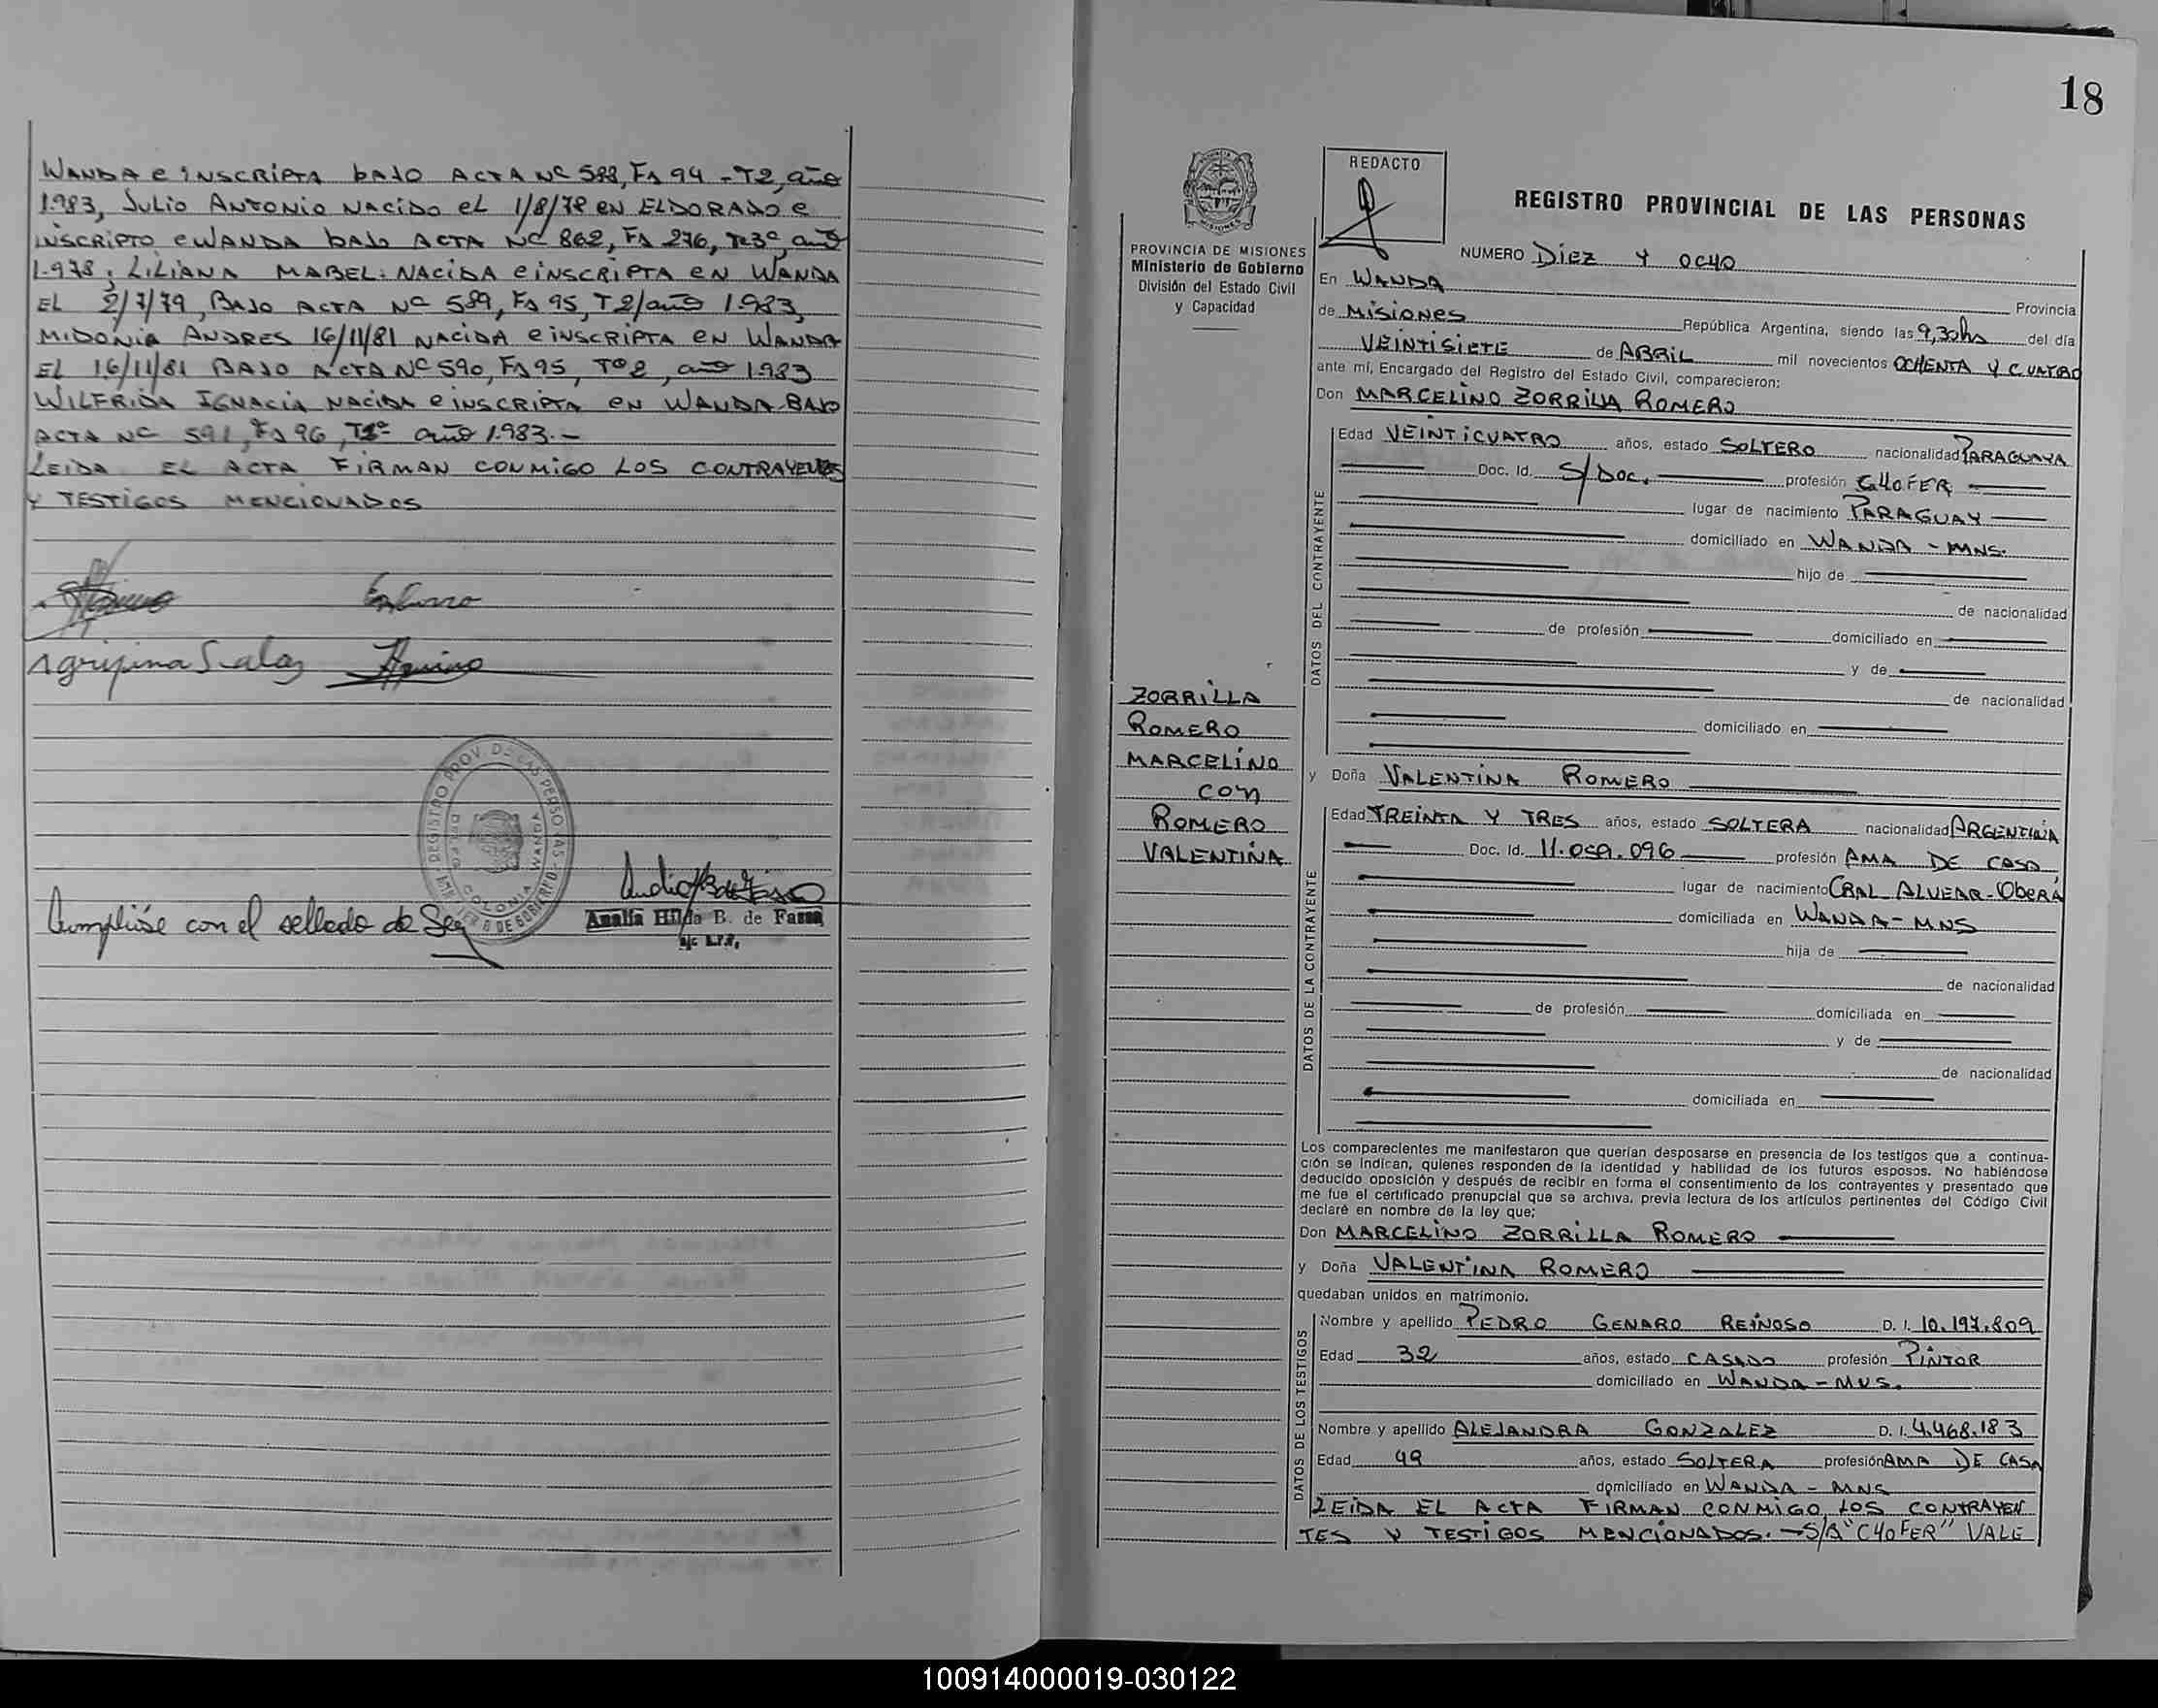 WANDA e iNSCRiPTA bAJO ACTA Nº 588, Fº 94 - T2, año
1.983, JULiO ANTONiO NACiDO eL 1/8/78 eN ELDORADO e
iNSCRiPTO eWANDA bAJo ACTA Nº 862, Fº 276, Tº3º, año
1.978, LiLiANA MABEL: NACiDA e iNSCRiPTA eN WANDA
EL 2/7/79, BAJO ACTA Nº 589, Fº 95, T 2/año 1.983,
MiDONiA ANDRES 16/11/81 NACiDA e iNSCRiPTA eN WANDA
EL 16/11/81 BAJO ACTA Nº 590, Fº 95, Tº 2, año 1.983
WiLFRiDA IGNACiA NACiDA e iNSCRiPTA eN WANDA BAJO
ACTA Nº 591, Fº 96, año 1.983.-
LEiDA EL ACTA FiRMAN CONMiGO LOS CONTRAYENTES
Y TESTiGOS MENCiONADOS
Agripina Salas
REGISTRO PROV. DE LAS PERSONAS
COLONIA WANDA
Cumplióse con el sellado de Ley
Analía Hilda B. de Fassa
18
PROVINCIA DE MISIONES
Ministerio de Gobierno
División del Estado Civil
y Capacidad
REDACTO
REGISTRO PROVINCIAL DE LAS PERSONAS
NUMERO DiEZ Y OCHO
En WANDA Provincia
de MiSiONES República Argentina, siendo las 9,30hs del día
VEiNTiSiETE de ABRiL mil novecientos OCHENTA Y CUATRO
ante mí, Encargado del Registro del Estado Civil, comparecieron:
Don MARCELiNO ZORRiLLA ROMERO
DATOS DEL CONTRAYENTE
Edad VEiNTiCUATRO años, estado SOLTERO nacionalidad PARAGUAYA
Doc. Id. S/Doc. profesión CHOFER
lugar de nacimiento PARAGUAY
domiciliado en WANDA - MNS.
hijo de
de nacionalidad
de profesión domiciliado en
y de
de nacionalidad
domiciliado en
ZORRiLLA
ROMERO
MARCELiNO
CON
ROMERO
VALENTiNA
y Doña VALENTiNA ROMERO
DATOS DE LA CONTRAYENTE
Edad TREiNTA Y TRES años, estado SOLTERA nacionalidad ARGENTiNA
Doc. Id. 11.059.096 profesión AMA DE CASA
lugar de nacimiento GRAL ALVEAR-ObeRÁ
domiciliada en WANDA - MNS
hija de
de nacionalidad
de profesión domiciliada en
y de
de nacionalidad
domiciliada en
Los comparecientes me manifestaron que querían desposarse en presencia de los testigos que a continua-
ción se indican, quienes responden de la identidad y habilidad de los futuros esposos. No habiéndose
deducido oposición y después de recibir en forma el consentimiento de los contrayentes y presentado que
me fue el certificado prenupcial que se archiva, previa lectura de los artículos pertinentes del Código Civil
declaré en nombre de la ley que;
Don MARCELiNO ZORRiLLA ROMERO
y Doña VALENTiNA ROMERO
quedaban unidos en matrimonio.
DATOS DE LOS TESTIGOS
Nombre y apellido PEDRO GENARO REiNOSO D. I. 10.197.809
Edad 32 años, estado CASADO profesión PiNTOR
domiciliado en WANDA - MNS.
Nombre y apellido ALEJANDRA GONZALEZ D. I. 4.468.183
Edad 49 años, estado SOLTERA profesión AMA DE CASA
domiciliado en WANDA - MNS
LEiDA EL ACTA FiRMAN CONMiGO LOS CONTRAYEN
TES Y TESTiGOS MENCiONADOS. - S/R "CHOFER" VALE
100914000019-030122